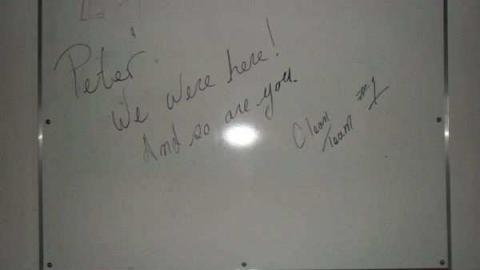 Peter
We were here!
And so are you.
Clean
Team